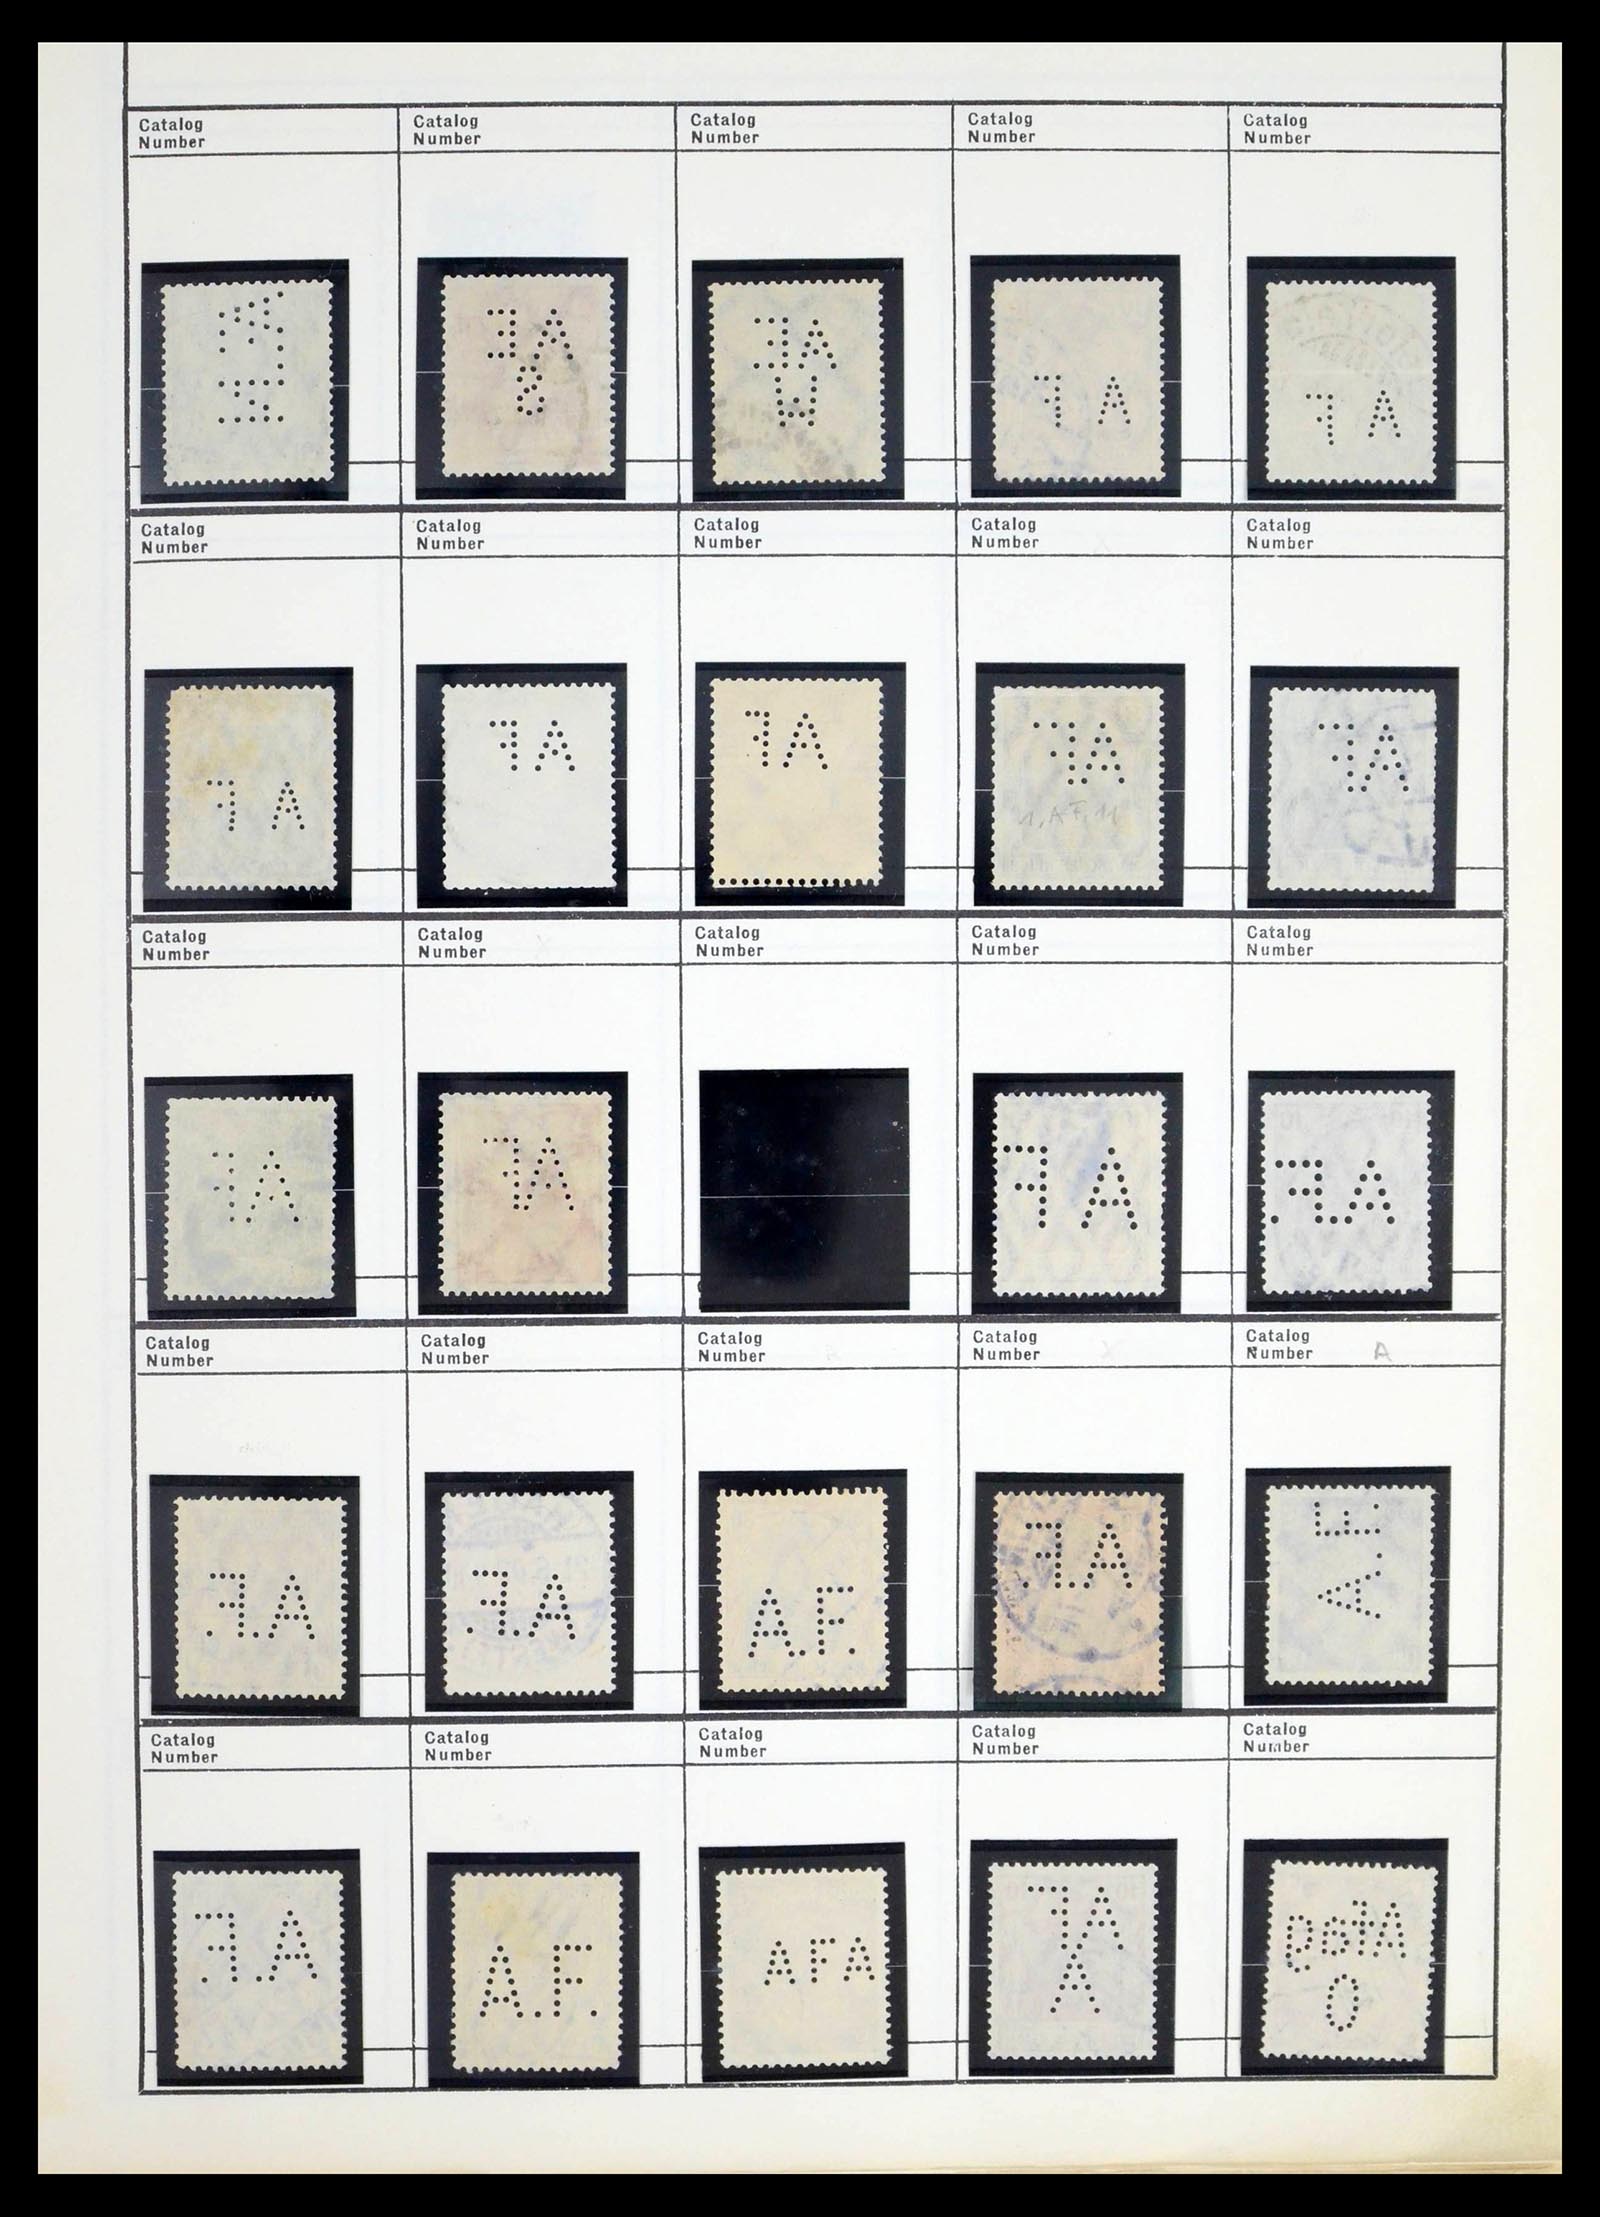 Catalog Number
Catalog Number
Catalog Number
Catalog Number
Catalog Number
AE
S
AE
W
AF
AF
Catalog Number
Catalog Number
Catalog Number
Catalog Number
Catalog Number
AF
AF
AF
AF
1.AF.11
AF
Catalog Number
Catalog Number
Catalog Number
Catalog Number
Catalog Number
AF
AF
AF
A.F.
Catalog Number
Catalog Number
Catalog Number
Catalog Number
Catalog Number A
A.F.
A.F.
A.F.
A.F.
A.F.
Catalog Number
Catalog Number
Catalog Number
Catalog Number
Catalog Number
A.F.
A.F.
AFA
AF
A
Afag
O